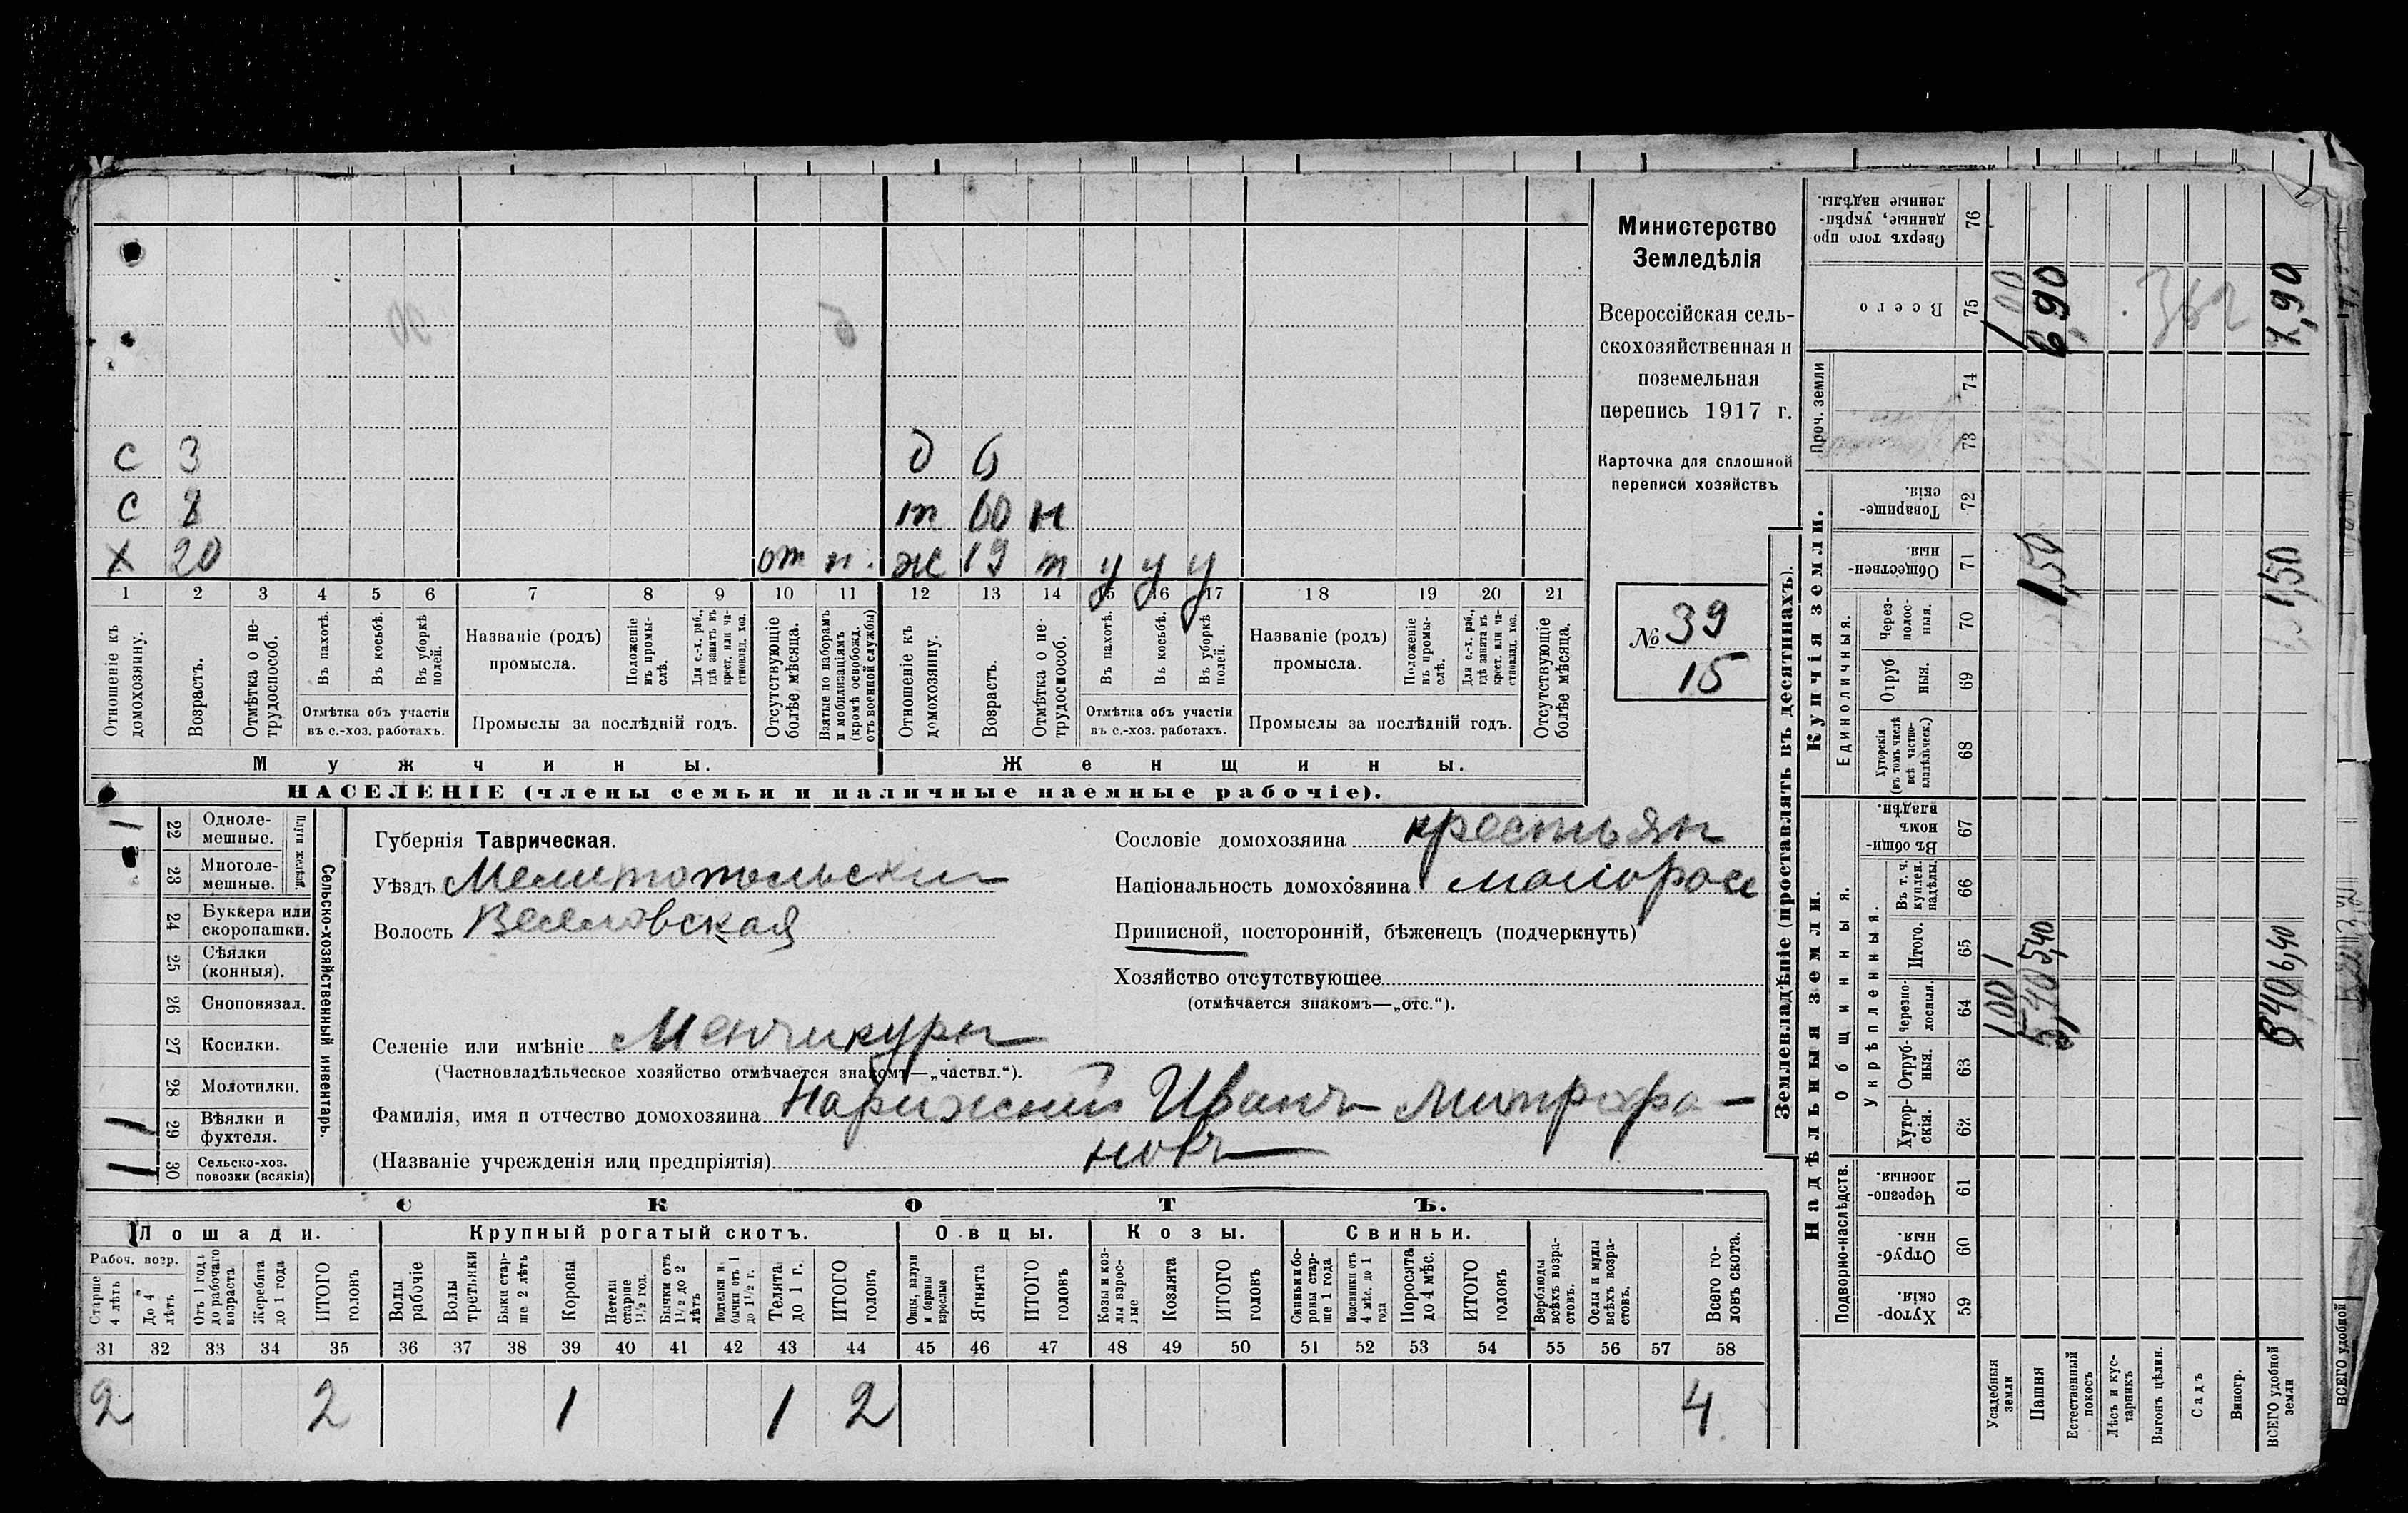 с 3 д 6
с 8 т 60 н
х 20 от п. ж 19 т у у у
1 2 3 4 5 6 7 8 9 10 11 12 13 14 15 16 17 18 19 20 21
Отношеніе къ домохозяину.
Возрастъ.
Отмѣтка о не-трудоспособ.
Въ пахотѣ.
Въ косьбѣ.
Въ уборкѣ полей.
Отмѣтка объ участіи
въ с.-хоз. работахъ.
Названіе (родъ)
промысла.
Положеніе въ промы-слѣ.
Для с.-х. раб., гдѣ занятъ въ крест. или ча-стновлад. хоз.
Промыслы за послѣдній годъ.
Отсутствующіе болѣе мѣсяца.
Взятые по наборамъ и мобилизаціямъ (кромѣ освобожд. отъ военной службы)
Отношеніе къ домохозяину.
Возрастъ.
Отмѣтка о не-трудоспособ.
Въ пахотѣ.
Въ косьбѣ.
Въ уборкѣ полей.
Отмѣтка объ участіи
въ с.-хоз. работахъ.
Названіе (родъ)
промысла.
Положеніе въ промы-слѣ.
Для с.-х. раб., гдѣ занята въ крест. или ча-стновлад. хоз.
Промыслы за послѣдній годъ.
Отсутствующіе болѣе мѣсяца.
Мужчины. Женщины.
НАСЕЛЕНІЕ (члены семьи и наличные наемные рабочіе).
Министерство
Земледѣлія
Всероссійская сель-
скохозяйственная и
поземельная
перепись 1917 г.
Карточка для сплошной
переписи хозяйствъ
№ 39
15
1 22 Одноле-мешные.
23 Многоле-мешные.
Плуги желѣзн.
24 Буккера или скоропашки.
25 Сѣялки (конныя).
26 Сноповязал.
27 Косилки.
28 Молотилки.
1 29 Вѣялки и фухтеля.
1 30 Сельско-хоз. повозки (всякія)
Сельско-хозяйственный инвентарь.
Губернія Таврическая.
Уѣздъ Мелитопольскій
Волость Веселовская
Сословіе домохозяина крестьян
Національность домохозяина малоросс
Приписной, посторонній, бѣженецъ (подчеркнуть)
Хозяйство отсутствующее
(отмѣчается знакомъ—„отс.“).
Селеніе или имѣніе Менчикуры
(Частновладѣльческое хозяйство отмѣчается знакомъ—„частвл.“).
Фамилія, имя и отчество домохозяина Нарижній Иванъ Митрофа-
новъ
(Названіе учрежденія или предпріятія)
СКОТЪ.
Лошади. Крупный рогатый скотъ. Овцы. Козы. Свиньи.
Рабоч. возр.
Старше 4 лѣтъ
До 4 лѣтъ
Отъ 1 года до рабочаго возраста
Жеребята до 1 года
ИТОГО головъ
Волы рабочіе
Волы третьяки
Быки стар-ше 2 лѣтъ
Коровы
Нетели старше 1½ год.
Бычки отъ 1½ до 2 лѣтъ
Подтелки и бычки отъ 1 до 1½ г.
Телята до 1 г.
ИТОГО головъ
Овцы, валухи и бараны взрослые
Ягнята
ИТОГО головъ
Козы и коз-лы взрос-лые
Козлята
ИТОГО головъ
Свиньи и бо-ровы стар-ше 1 года
Подсвинки отъ 4 мѣс. до 1 года
Поросята до 4 мѣс.
ИТОГО головъ
Верблюды всѣхъ возра-стовъ.
Ослы и мулы всѣхъ возра-стовъ.
Всего го-ловъ скота.
31 32 33 34 35 36 37 38 39 40 41 42 43 44 45 46 47 48 49 50 51 52 53 54 55 56 57 58
2 2 1 1 2 4
Землевладѣніе (проставлять въ десятинахъ).
Надѣльныя земли. Купчія земли.
Проч. земли
Подворно-наслѣдств. Общинныя. Единоличныя.
Укрѣпленныя.
76 Сверхъ того про данные, укрѣп-ленные надѣлы.
75 Всего 1 00 6,90 7,90
74
73
72 Товарище-скія.
71 Обществен-ныя 1,50 1,50
70 Через-полос-ныя.
69 Отруб ныя.
68 Хуторскія (въ томъ числѣ всѣ частно-владѣльческ.)
67 Въ общин-номъ владѣн.
66 Въ т. ч. куплен. надѣлы
65 Итого. 1 5,40 6,40
64 Черезпо-лосныя. 1 00 5,40 6,40
63 Отруб-ныя.
62 Хутор-скія.
61 Черезпо-лосныя.
60 Отруб-ныя.
59 Хутор-скія.
Усадебныя земли
Пашня
Естественный покосъ
Лѣсъ и кус-тарникъ
Выгонъ цѣлин.
Садъ
Виногр.
ВСЕГО удобной земли
ВСЕГО удобной